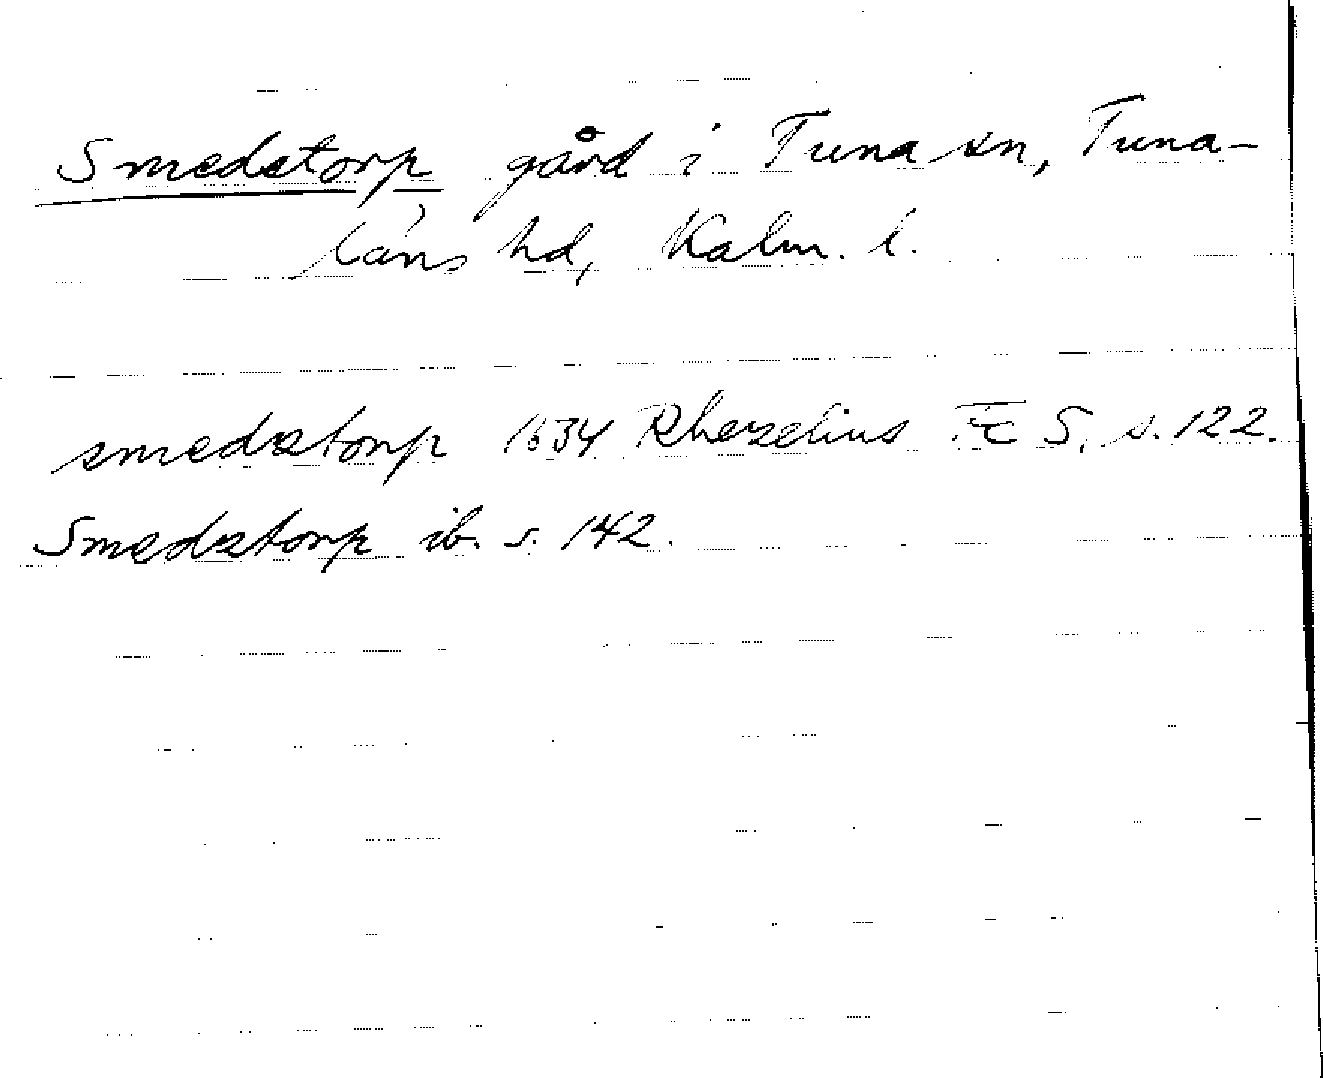 Smedstorp gård i Tuna sn, Tuna-
läns hd, Kalm. l.
smedstorp 1634 Rhezelius Fc 5, s. 122.
Smedstorp ib. s. 142.